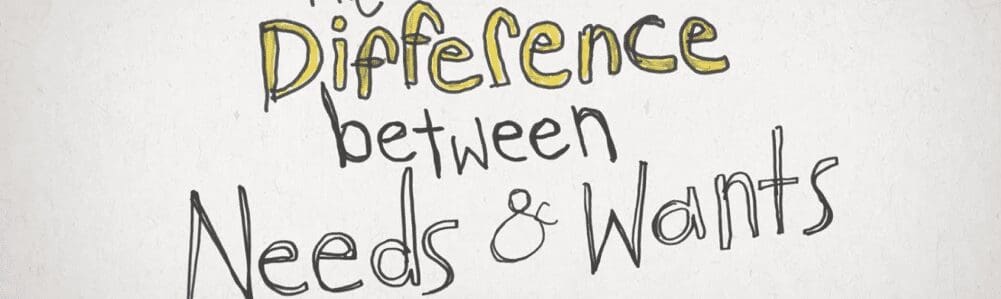 Difference
between
Needs & Wants